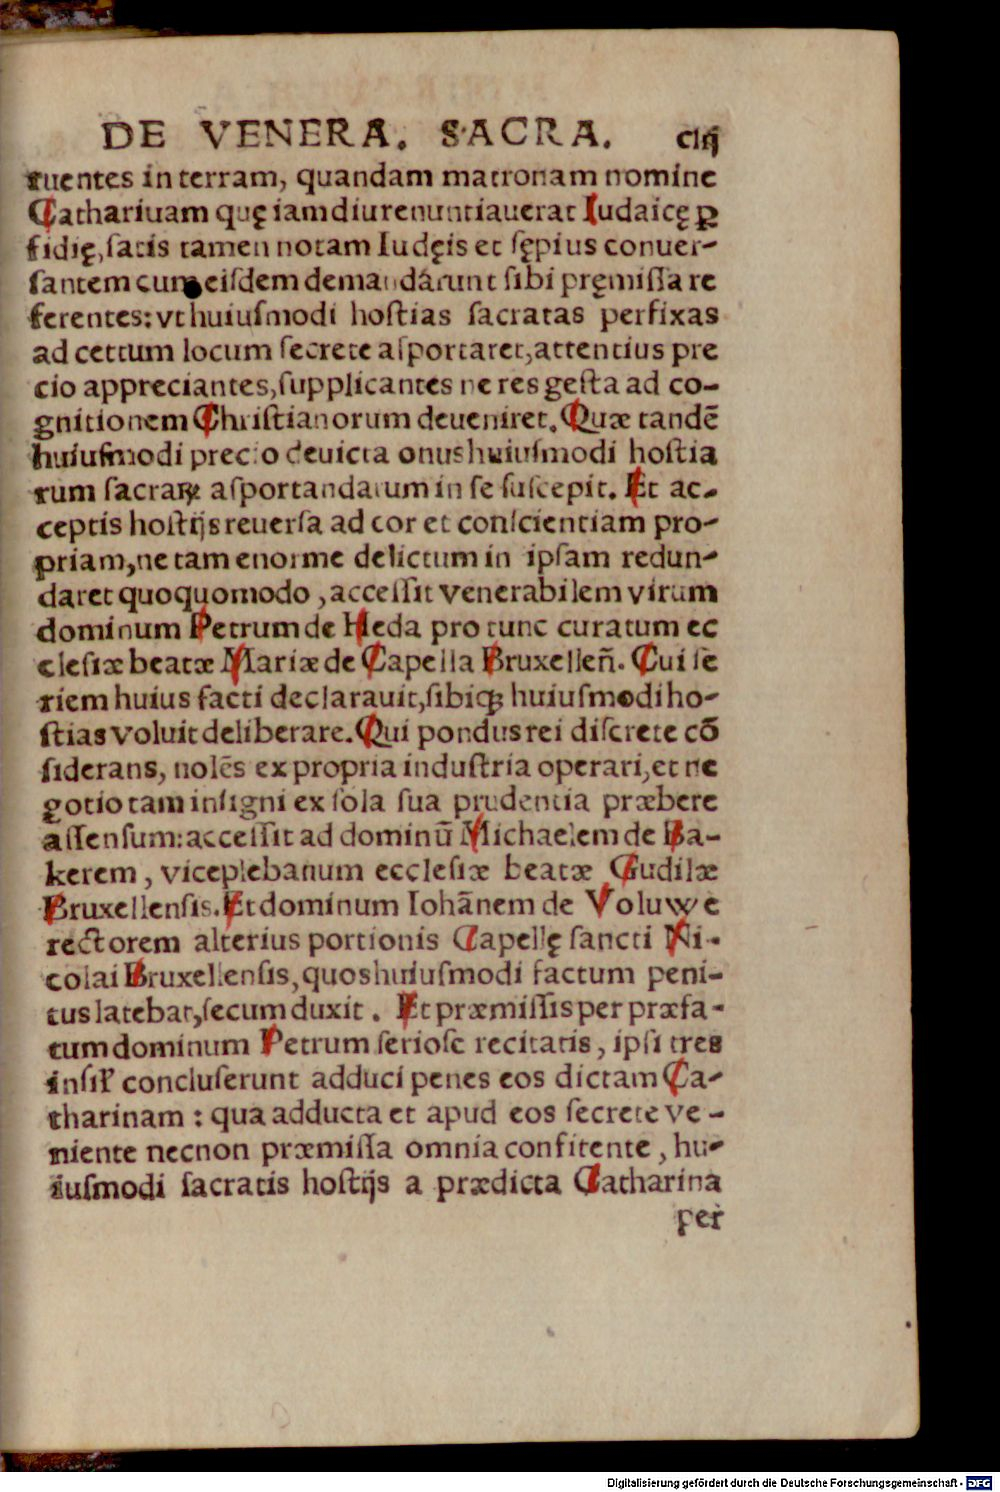 DE VENERA. SACRA. clij
ruentes in terram, quandam matronam nomine
Cathariuam quę iamdiu renuntiauerat Iudaicę ꝑ
fidię, satis tamen notam Iudęis et sępius conuer-
santem cum eisdem demandárunt sibi pręmissa re
ferentes: vt huiusmodi hostias sacratas perfixas
ad certum locum secrete asportaret, attentius pre
cio appreciantes, supplicantes ne res gesta ad co-
gnitionem Christianorum deueniret. Quæ tandē
huiusmodi precio deuicta onus huiusmodi hostia
rum sacraꝝ asportandarum in se suscepit. Et ac-
ceptis hostijs reuersa ad cor et conscientiam pro-
priam, ne tam enorme delictum in ipsam redun-
daret quoquomodo, accessit venerabilem virum
dominum Petrum de Heda pro tunc curatum ec
clesiæ beatæ Mariæ de Capella Bruxelleñ. Cui se
riem huius facti declarauit, sibiqꝫ huiusmodi ho-
stias voluit deliberare. Qui pondus rei discrete cō
siderans, nolēs ex propria industria operari, et ne
gotio tam insigni ex sola sua prudentia præbere
assensum: accessit ad dominū Michaelem de Ba-
kerem, viceplebanum ecclesiæ beatæ Gudilæ
Bruxellensis. Et dominum Iohānem de Voluwe
rectorem alterius portionis Capellę sancti Ni-
colai Bruxellensis, quos huiusmodi factum peni-
tus latebat, secum duxit. Et præmissis per præfa-
tum dominum Petrum seriose recitatis, ipsi tres
insiɫ concluserunt adduci penes eos dictam Ca-
tharinam: qua adducta et apud eos secrete ve-
niente necnon præmissa omnia confitente, hu-
iusmodi sacratis hostijs a prædicta Catharina
per
Digitalisierung gefördert durch die Deutsche Forschungsgemeinschaft - DFG